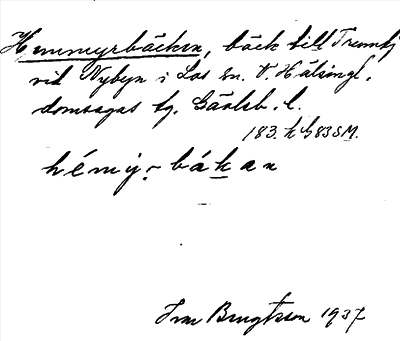 Hemmyrbäcken, bäck till
vid Nybyn i Los sn. V. Hälsingl.
domsagas tg. Gävleb. l.
183. h b83SM.
hémy̨r-bákan
Bengtsson 1937